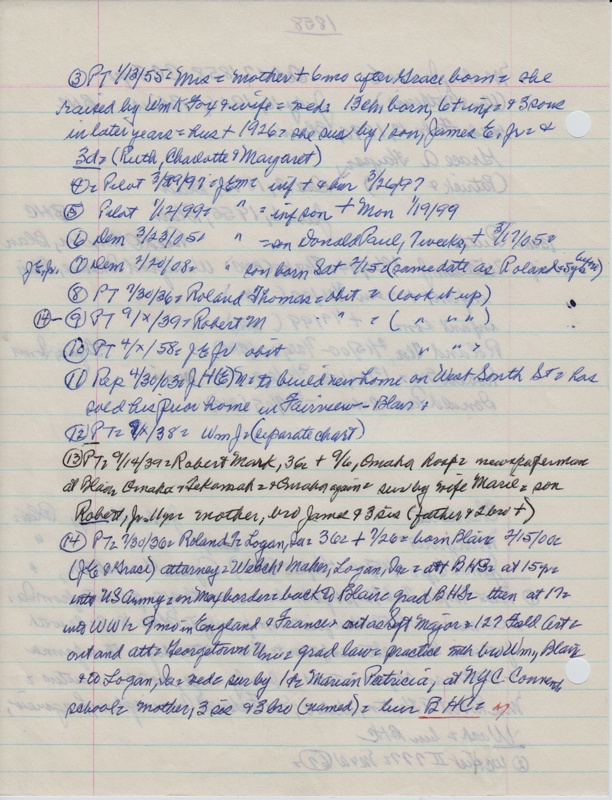 ③ PT 1/13/55= Mrs= mother + 6mo after Grace born= she
raised by Wm K Fox & wife= res= 13 ch born, 6+ inf= & 3 sons
in later years= hus + 1926= she sur by 1 son, James E, Jr= &
3d= (Ruth, Charlotte & Margaret)
④= Pilot 3/29/97= JEM= inf + & bur 3/26/97
⑤ Pilot 1/12/99= " = inf son + Mon 1/19/99
⑥ Dem 3/23/05= " = son Donald Paul, 7 weeks, + 3/17/05=
J E Jr. ⑦ Dem 2/20/08= " son born Sat 2/15= (same date as Roland=
⑧ PT 7/30/36= Roland Thomas= obit = (look it up)
⑭ - ⑨ PT 9/x/39= Robert M " = ( " " " )
⑩ PT 4/x/58= J E Jr obit " " "
⑪ Rep 4/30/03= J H(E) M= to build new home on West South St= has
sold his prior home in Fairview - Blair=
⑫ PT= 9/x/38= Wm J= (separate chart)
⑬ PT= 9/14/39= Robert Mark, 36= + 9/6, Omaha hosp= newspaperman
at Blair= Omaha & Tekamah= & Omaha again= sur by wife Marie= son
Robert, Jr. 11yr= mother, bro James & 3 sis (father & 2 bro +)
⑭ PT= 7/30/36= Roland T= Logan, Ia= 36= + 7/26= born Blair 2/15/00=
(JE & Grace) attorney= Welch & Maher, Logan, Ia= att BHS= at 15=
into US Army= on Mex border= back to Blair= grad BHS= then at 17=
into WW1= 9 mo in England & France= out as Sgt Major= 127 Field Art=
out and att= Georgetown Univ= grad law= practice with bro Wm, Blair
& to Logan, Ia= res= sur by 1 d= Marian Patricia, at NYC Convent
school= mother, 3 sis & 3 bro (named)= bur BHC=